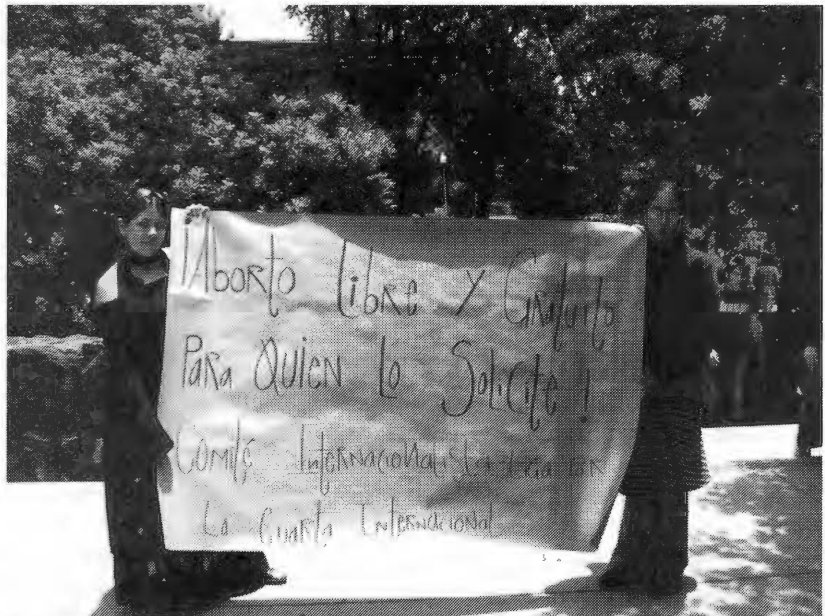 ¡Aborto Libre y Gratuito
Para Quien Lo Solicite!
Comité Internacionalista
La Cuarta Internacional